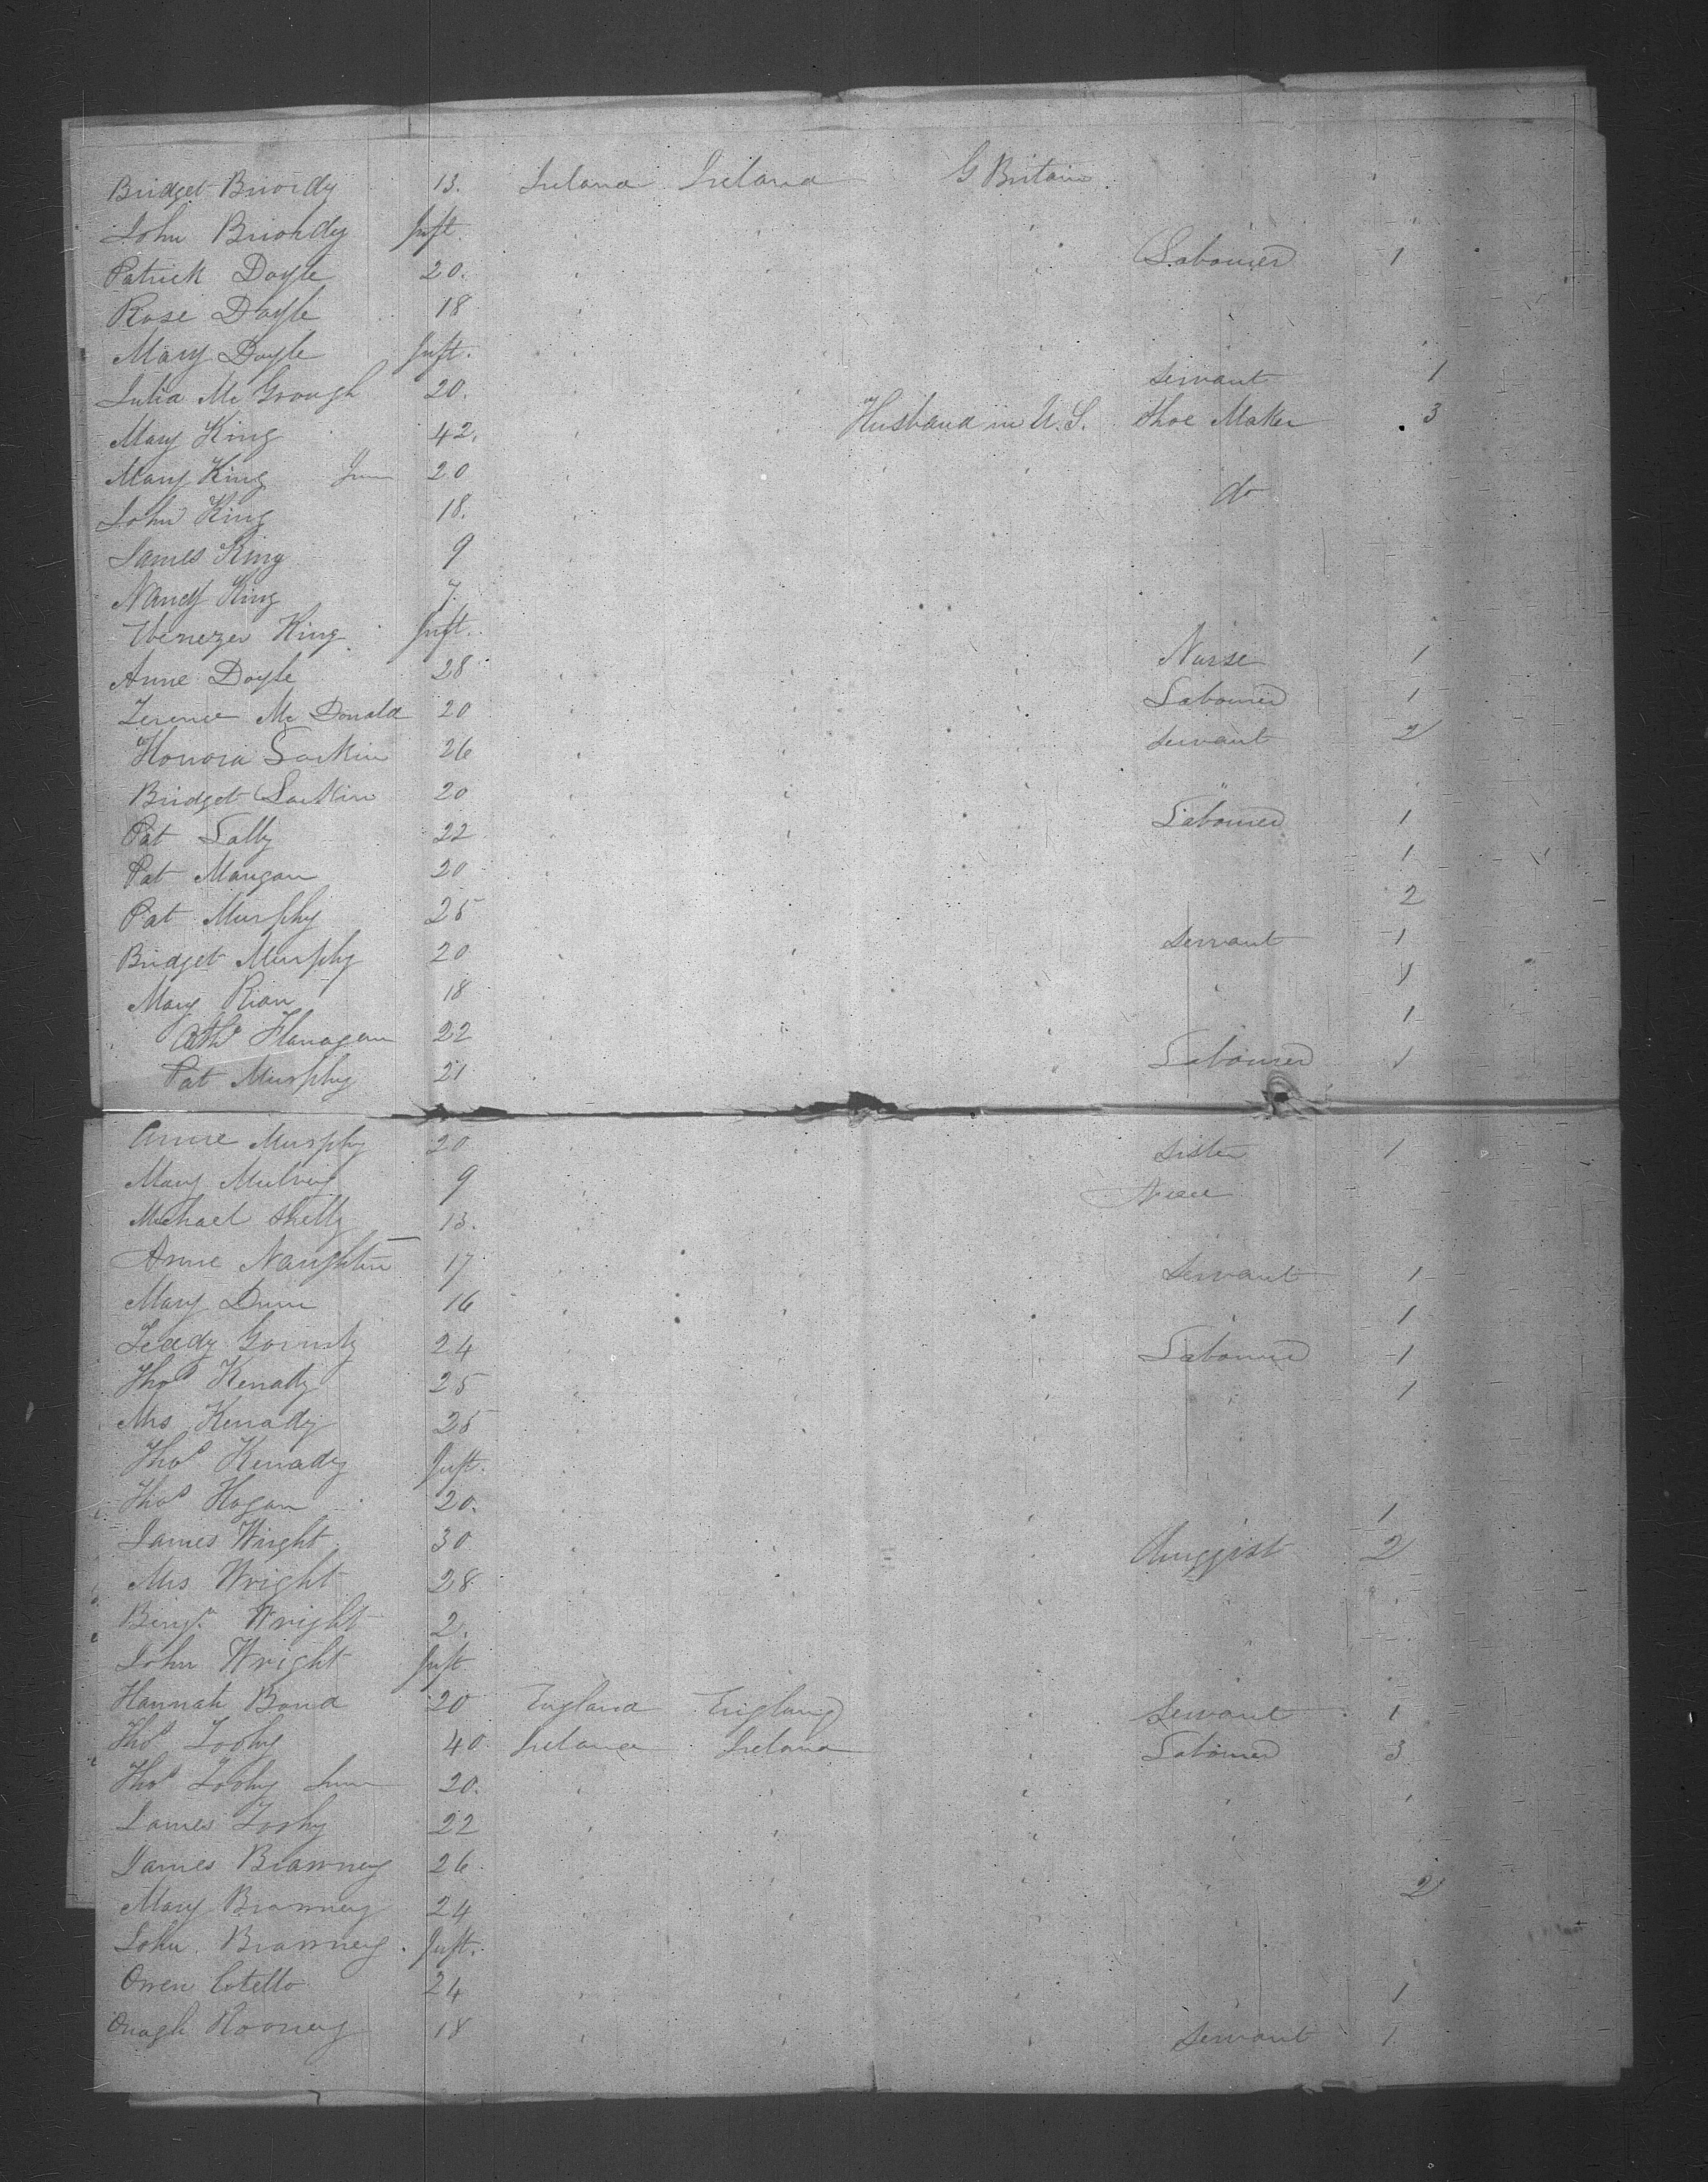 Bridget Briordy 13. Ireland Ireland G Britain
John Briordy Inft.
Patrick Doyle 20. Labourer 1
Rose Doyle 18
Mary Doyle Inft.
Julia Mc Grough 20. servant 1
Mary King 42. Husband in U.S. Shoe Maker 3
Mary King Junr 20
John King 18. do
James King 9
Nancy King 7
Ebenezer King Inft.
Anne Doyle 28 Nurse 1
Terence Mc Donald 20 Labourer 1
Honora Larkin 26 servant 2
Bridget Larkin 20 "
Pat Lally 22 Labourer 1
Pat Mangan 20 1
Pat Murphy 25 2
Bridget Murphy 20 servant 1
Mary Rian 18 " 1
Cathe Flanagan 22 1
Pat Murphy 21 Labourer 1
Anne Murphy 20 Sister 1
Mary Mulvey 9 Niece
Michael Shelly 13.
Anne Naughten 17 Servant 1
Mary Dunn 16 1
Teady Gormly 24 Labourer 1
Thos Kenady 25 " 1
Mrs Kenady 25
Thos Kenady Inft.
Thos Hogan 20. 1
James Wright 30 Druggist 2
Mrs Wright 28
Benjn Wright 2.
John Wright Inft
Hannah Bond 20 England England Servant 1
Thos Toohy 40 Ireland Ireland Labourer 3
Thos Toohy Junr 20.
James Toohy 22
James Brawney 26 2
Mary Brawney 24
John Brawney Inft.
Owen Cotello 24 1
Onagh Rooney 18 Servant 1